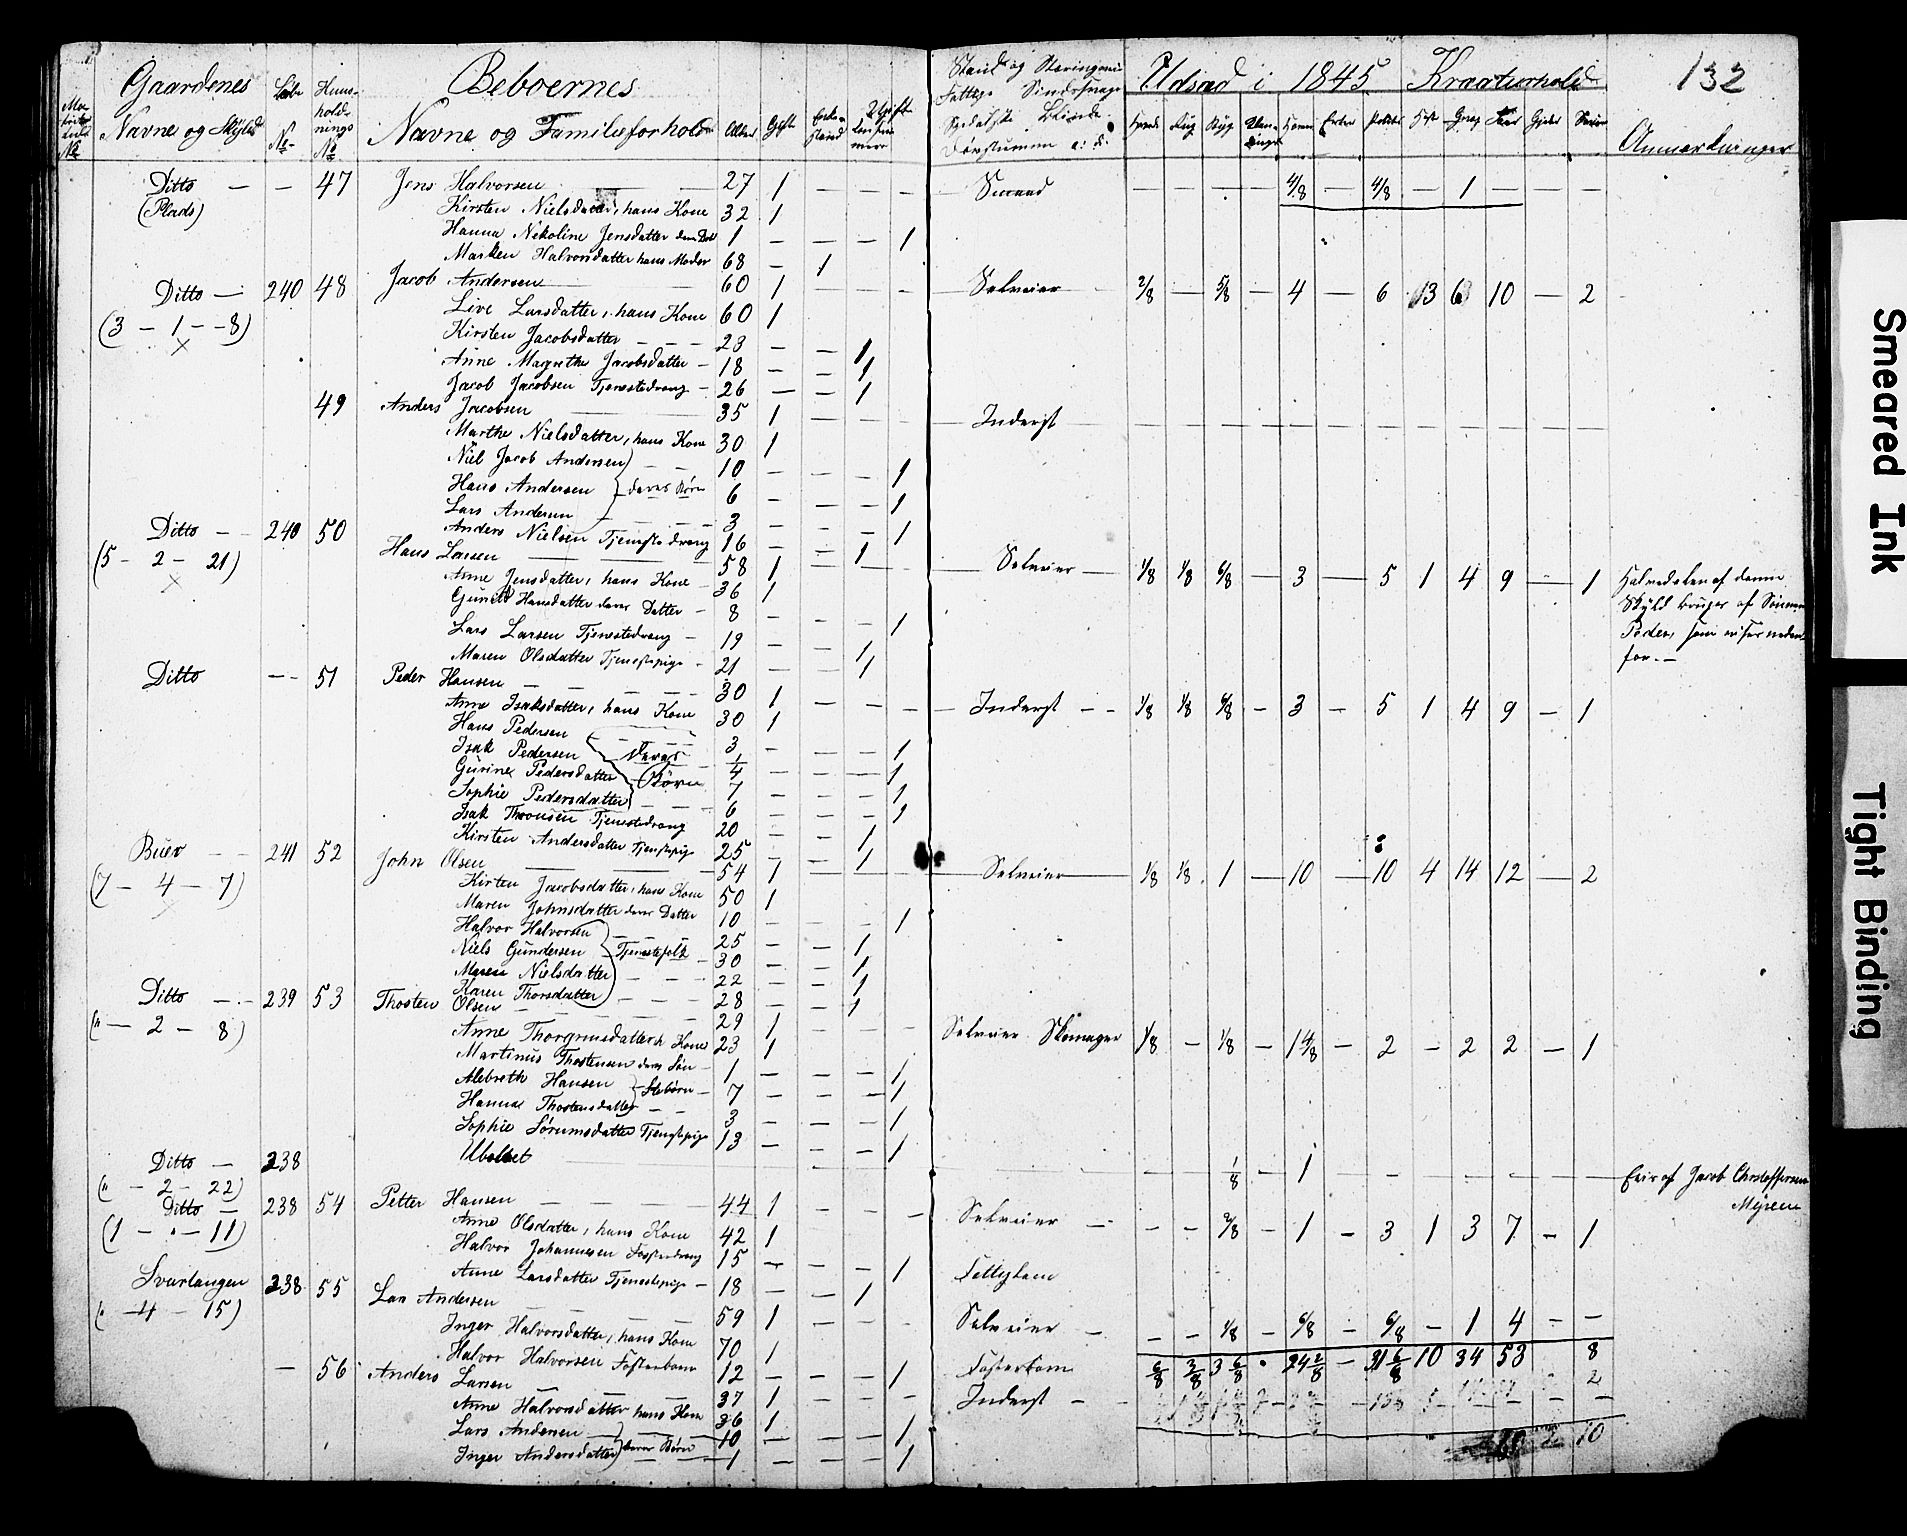 Gaardenes
Navne og Skyld
Løbe No
Huus-
hold-
nings
No
Beboernes
Navne og Familieforhold
Alder Gifte
Stand og Næringsvei
Udsæd i 1845 Kreaturhold
132
Hvede Rug Byg Havre Erter Poteter Hest Faar Gjeder Sviin
Anmærkninger
Ditto — — 47 Jens Halvorsen — — 27 1 — — — Smed — — — — 4/8 — 4/8 — 1 — — —
(Plads)
Kirsten Nielsdatter, hans Kone 32 1
Hanna Nekoline Jensdatter 1 — — — 1
Marken Halvorsdatter hans Moder 68 — 1
Ditto — 240 48 Jacob Andersen — 60 1 — — — Selveier 2/8 — 5/8 — 4 — 6 13 6 10 — 2
(3 — 1 — 8)
×
Live Larsdatter, hans Kone 60 1
Kirsten Jacobsdatter — — — 23 — — 1
Anne Magrethe Jacobsdatter — 18 — — 1
Jacob Jacobsen Tjenestedreng — 26 — — 1
49 Anders Jacobsen — — 35 1 — — — Inderst — — — — — — — — — — — —
Marthe Nielsdatter, hans Kone 30 1
Niel Jacob Andersen — — 10 — — — 1
Hans Andersen deres Børn 6 — — — 1
Lars Andersen — — — 3 — — — 1
Anders Nielsen Tjenestedreng 16 — — 1
Ditto — — 240 50 Hans Larsen — — 58 1 — — — Selveier — 1/8 1/8 6/8 — 3 — 5 1 4 9 — 1
(5 — 2 — 21)
×
Halvedelen af denne
Skyld bruges af Sønnen
Peder, som viser neden-
for. —
Anne Jensdatter, hans Kone — 36 1
Hansdatter deres Datter — 8 — — — 1
Lars Larsen Tjenestedreng — 19 — — 1
Maren Olsdatter Tjenestepige — 21 — — 1
Ditto — — 51 Peder Hansen — — — — 30 1 — — — Inderst — — 1/8 1/8 6/8 — 3 — 5 1 4 9 — 1
Anne Isaksdatter, hans Kone 30 1
Hans Pedersen — — — 3 — — — 1
Isak Pedersen Deres 1/4 — — — 1
Gurine Pedersdatter Børn 7 — — — 1
Sophie Pedersdatter — — — 6 — — — 1
Isak Thronsen Tjenestedreng 20 — — 1
Kirsten Andersdatter Tjenstepig 25 — — 1
Buer — — 241 52 John Olsen — — 54 1 — — — Selveier — 1/8 1/8 1 — 10 — 10 4 14 12 — 2
(7 — 4 — 7)
Kirsten Jacobsdatter, hans Kone 50 1
Maren Johnsdatter deres Datter 10 — — — 1
Halvor Halvorsen — — 25 — — 1
Niels Gundersen Tjenestefolk 30 — — 1
Maren Nielsdatter — — — 22 — — 1
Karen Thorsdatter — — — 28 — — 1
Ditto — — 239 53 Thosten Olsen — — — — 29 1 — — — Selveier Skomager 1/8 — 1/8 — 1 4/8 — 2 — 2 2 — 1
(" — 2 — 8)
Anne Thorgrimsdatter h Kone 23 1
Martinus Thostensen deres Søn — 1 — — — 1
Albreth Hansen Stebørn — 7 — — — 1
Hanna Thostensdatter — — 3 — — — 1
Sophie Sørumsdatter Tjenstepige 13 — — — 1
Ditto — 238 Ubeboet — — — — — 1/8 — 1 — — — — — —
(" — 2 — 22)
Eies af Jacob Christoffersen
Myrene
Ditto — 238 54 Petter Hansen — — — 44 1 — — — Selveier — — — 2/8 — 1 — 3 1 3 7 — 1
(1 — " — 11)
Anne Olsdatter, hans Kone 42 1
Halvor Johannesen Fosterdreng 15 — — — 1 Fattiglem
Anne Larsdatter Tjenestepige — 18 — — 1
Svartangen 238 55 Lars Andersen — — 59 1 — — — Selveier — — — 1/8 — 6/8 — 6/8 — 1 4 — —
(" — 4 — 15)
Inger Halvorsdatter, hans Kone 70 1
Halvor Halvorsen Fosterbarn 12 — — — 1 Fosterbarn
6/8 3/8 3 6/8 " 24 2/8 — 31 6/8 10 34 53 8
— 56 Anders Larsen — — — 37 1 — — — Inderst — —
2
Anne Halvorsdatter hans Kone 36 1
Lars Andersen — — — 10 — — — 1
10
Inger Andersdatter deres Børn — 1 — — — 1
Smeared Ink
Tight Binding